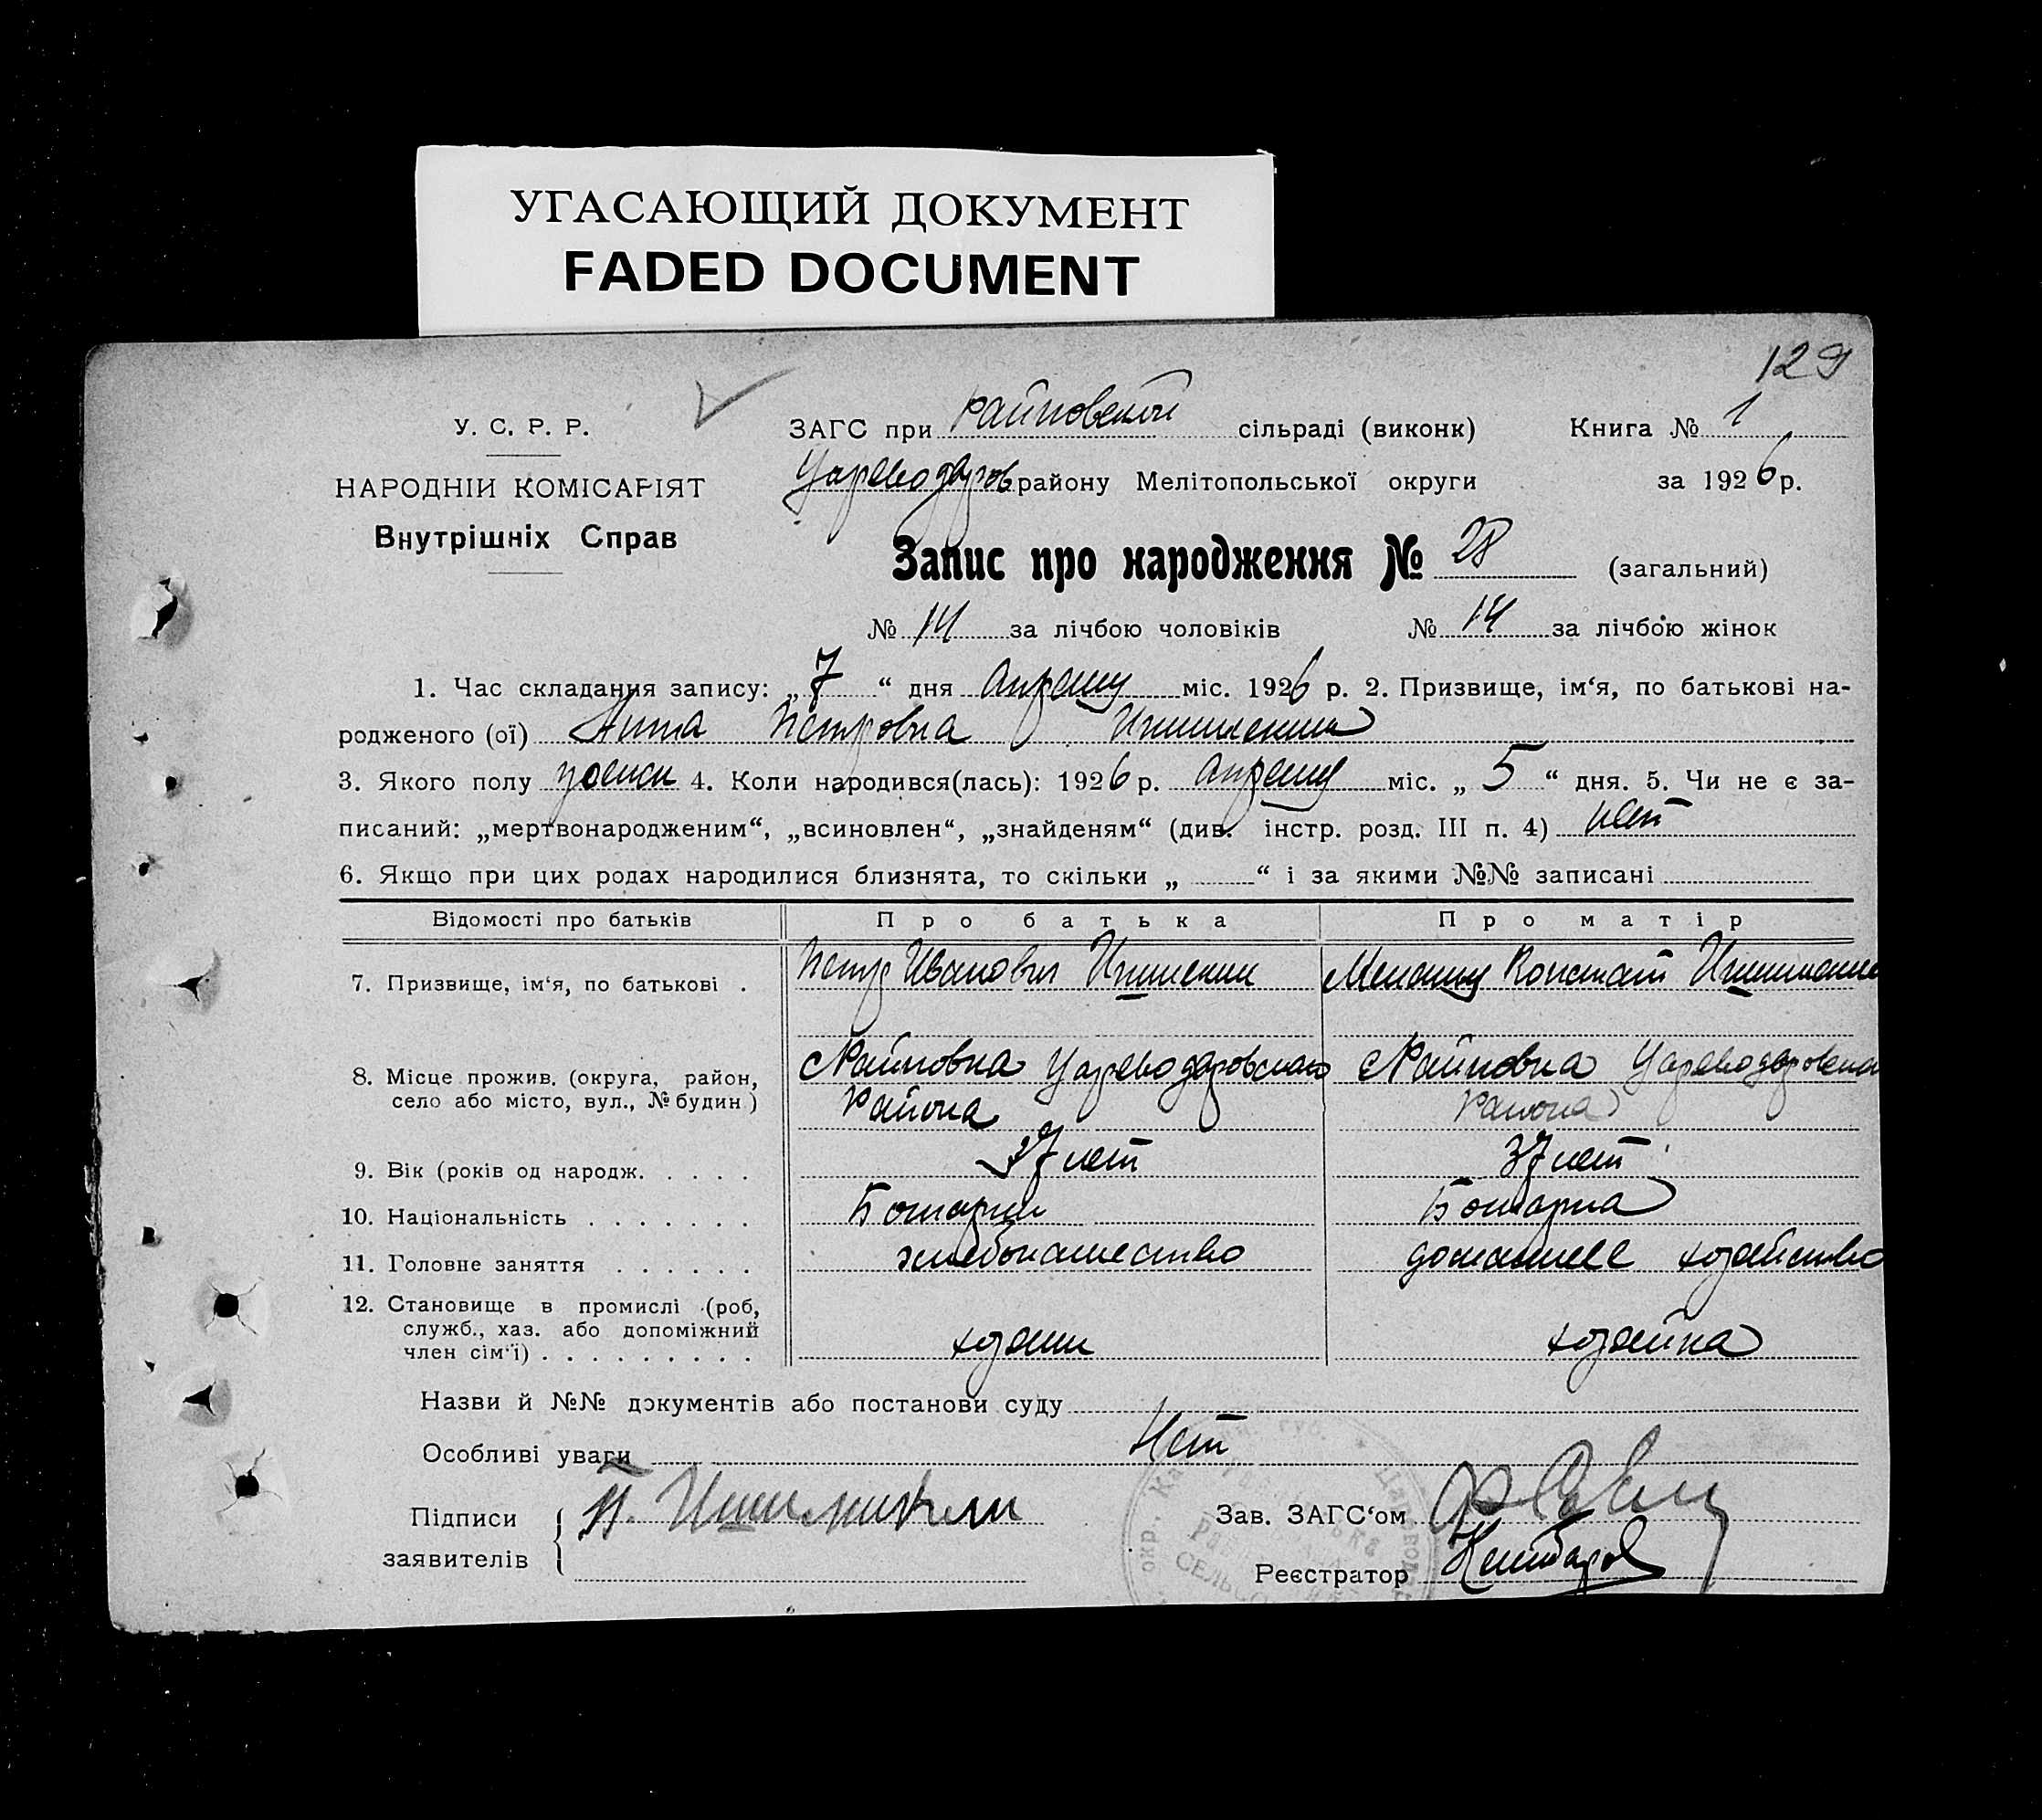 УГАСАЮЩИЙ ДОКУМЕНТ
FADED DOCUMENT
129
У. С. Р. Р.
НАРОДНІЙ КОМІСАРІЯТ
Внутрішніх Справ
ЗАГС при Райновской сільраді (виконк) Книга № 1
Цареводаров. району Мелітопольської округи за 1926 р.
Запис про народження № 28 (загальний)
№ 14 за лічбою чоловіків № 14 за лічбою жінок
1. Час складання запису: „ 7 “ дня апреля міс. 1926 р. 2. Призвище, ім‘я, по батькові на-
родженого (ої) Анна Петровна
3. Якого полу женск 4. Коли народився(лась): 1926 р. апреля міс. „ 5 “ дня. 5. Чи не є за-
писаний: „мертвонародженим“, „всиновлен“, „знайденям“ (див. інстр. розд. III п. 4) нет
6. Якщо при цих родах народилися близнята, то скільки „ “ і за якими №№ записані
Відомості про батьків Про батька Про матір
7. Призвище, ім‘я, по батькові . Петр Иванович Мелания Констант
8. Місце прожив. (округа, район, село або місто, вул., № будин) Райновка Цареводаровского Района Райновка Цареводаровского Района
9. Вік (років од народж. . . . . 37 лет 37 лет
10. Національність . . . . . . . Болгарин Болгарка
11. Головне заняття . . . . . . хлебопашество домашнее хозяйство
12. Становище в промислі (роб, служб., хаз. або допоміжний член сім‘ї) . . . . . . . . . хозяин хозяйка
Назви й №№ документів або постанови суду
Особливі уваги Нет
Підписи заявителів П.
Зав. ЗАГС‘ом
Реєстратор